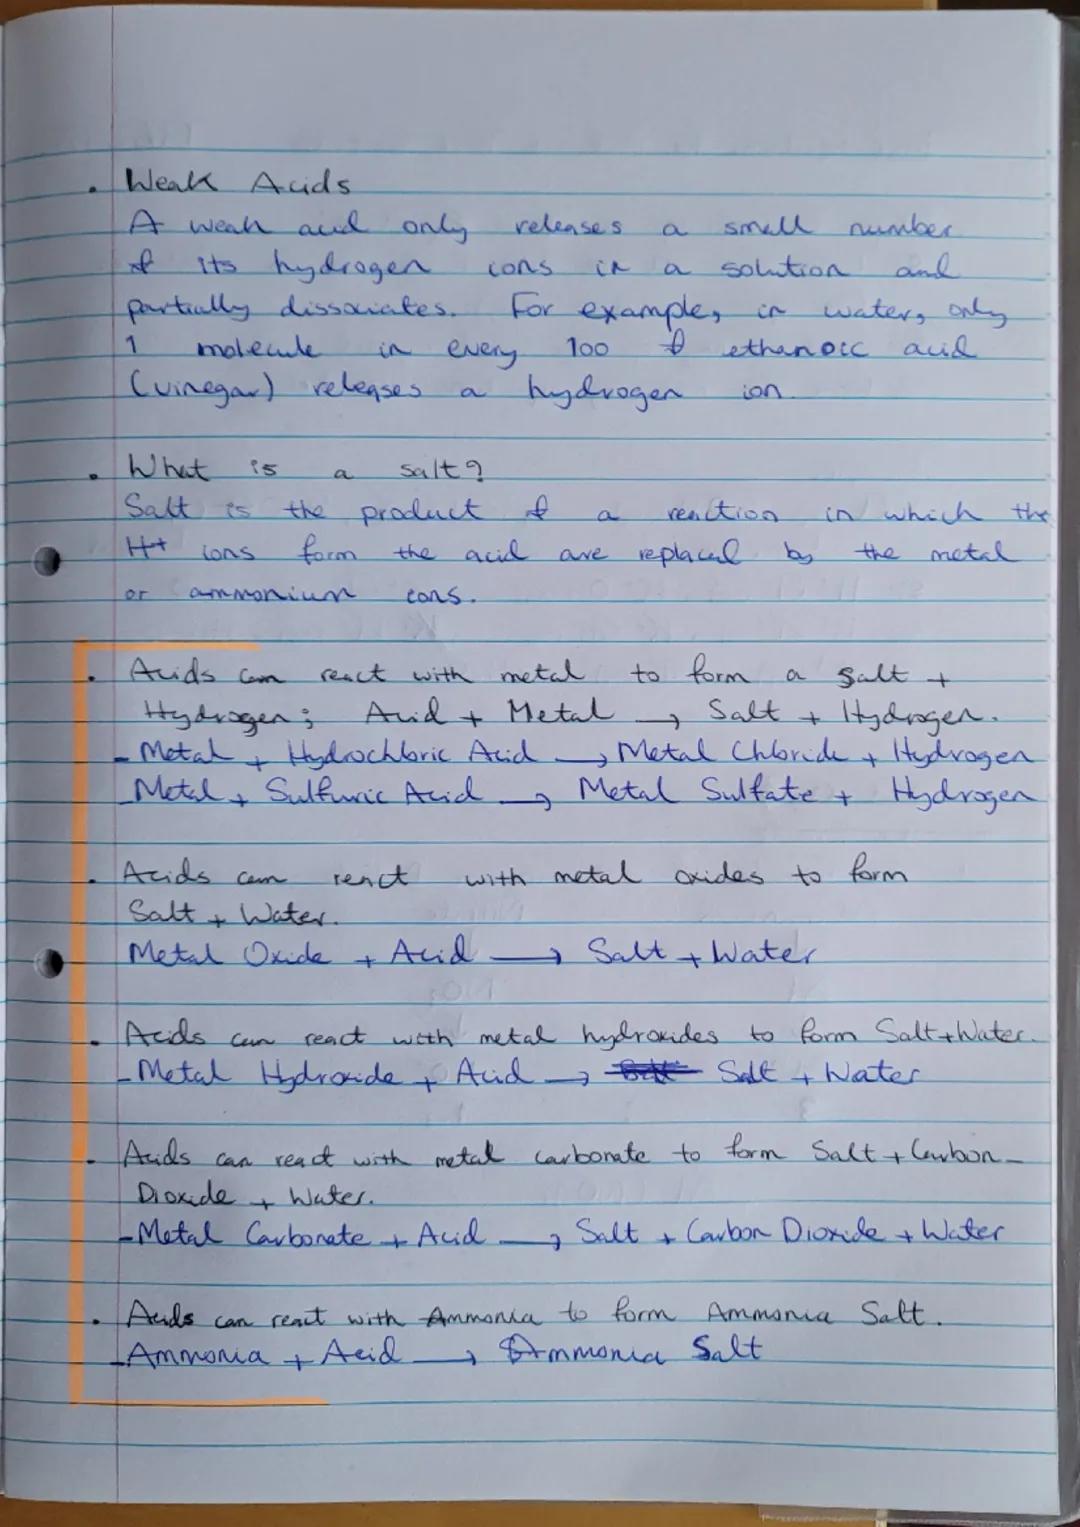 • Weak Acids
A weak acid only releases a small number
of its hydrogen ions in a solution and
partially dissociates. For example, in water, only
1 molecule in every 100 of ethanoic acid
(vinegar) releases a hydrogen ion.
• What is a salt?
Salt is the product of a reaction in which the
H+ ions form the acid are replaced by the metal
or ammonium ions.
• Acids can react with metal to form a salt +
Hydrogen; Acid + Metal → Salt + Hydrogen.
- Metal + Hydrochloric Acid → Metal Chloride + Hydrogen
- Metal + Sulfuric Acid → Metal Sulfate + Hydrogen
• Acids can react with metal oxides to form
Salt + Water.
Metal Oxide + Acid → Salt + Water
• Acids can react with metal hydroxides to form Salt + Water.
- Metal Hydroxide + Acid → Salt + Water
• Acids can react with metal carbonate to form Salt + Carbon-
Dioxide + Water.
- Metal Carbonate + Acid → Salt + Carbon Dioxide + Water
• Acids can react with Ammonia to form Ammonia Salt.
- Ammonia + Acid → Ammonia Salt